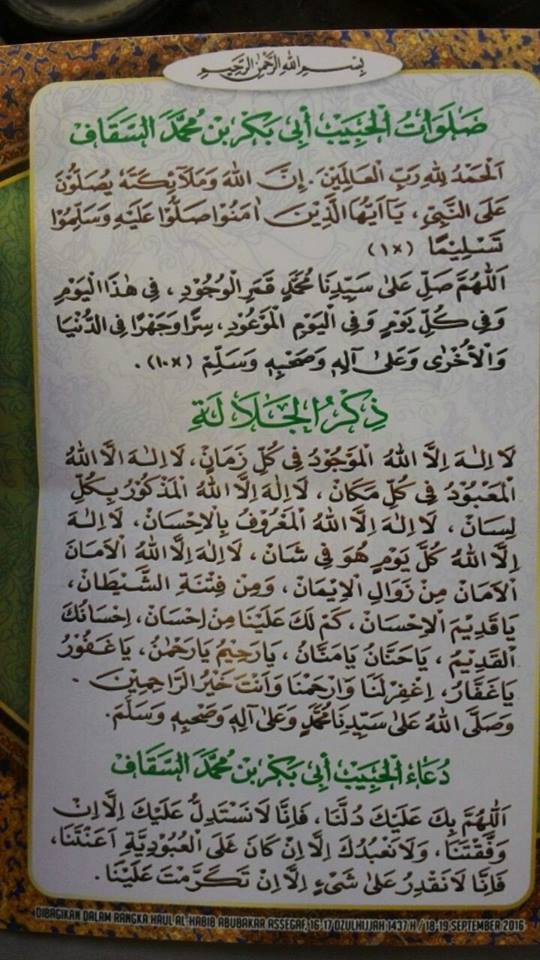 بِسْمِ اللهِ الرَّحْمٰنِ الرَّحِيْمِ
صَلَوَاتُ الْحَبِيْبْ أَبِي بَكَرْ بِنْ مُحَمَّدْ السَّقَافْ
اَلْحَمْدُ لِلّٰهِ رَبِّ الْعَالَمِيْنَ . إِنَّ اللهَ وَمَلَائِكَتَهُ يُصَلُّوْنَ
عَلَى النَّبِيِّ ، يَا أَيُّهَا الَّذِيْنَ آمَنُوْا صَلُّوْا عَلَيْهِ وَسَلِّمُوْا
تَسْلِيْمًا (١×)
اَللّٰهُمَّ صَلِّ عَلَى سَيِّدِنَا مُحَمَّدٍ قَمَرِ الْوُجُوْدِ ، فِي هٰذَا الْيَوْمِ
وَفِي كُلِّ يَوْمٍ وَفِي الْيَوْمِ الْمَوْعُوْدِ ، سِرًّا وَجَهْرًا فِي الدُّنْيَا
وَالْأُخْرٰى وَعَلَى آلِهِ وَصَحْبِهِ وَسَلِّمْ (١٠×) .
ذِكْرُ الْجَلَالَةِ
لَا اِلٰهَ اِلَّا اللهُ الْمَوْجُوْدُ فِي كُلِّ زَمَانْ ، لَا اِلٰهَ اِلَّا اللهُ
الْمَعْبُوْدُ فِي كُلِّ مَكَانْ ، لَا اِلٰهَ اِلَّا اللهُ الْمَذْكُوْرُ بِكُلِّ
لِسَانْ ، لَا اِلٰهَ اِلَّا اللهُ الْمَعْرُوْفُ بِالْاِحْسَانْ ، لَا اِلٰهَ
اِلَّا اللهُ كُلَّ يَوْمٍ هُوَ فِي شَانْ ، لَا اِلٰهَ اِلَّا اللهُ الْاَمَانْ
الْاَمَانْ مِنْ زَوَالِ الْاِيْمَانْ ، وَمِنْ فِتْنَةِ الشَّيْطَانْ ،
يَا قَدِيْمَ الْاِحْسَانْ ، كَمْ لَكَ عَلَيْنَا مِنْ اِحْسَانْ ، اِحْسَانُكَ
الْقَدِيْمُ ، يَا حَنَّانُ يَا مَنَّانُ ، يَا رَحِيْمُ يَا رَحْمٰنُ ، يَا غَفُوْرُ
يَا غَفَّارُ ، اِغْفِرْ لَنَا وَارْحَمْنَا وَاَنْتَ خَيْرُ الرَّاحِمِيْنَ .
وَصَلَّى اللهُ عَلَى سَيِّدِنَا مُحَمَّدٍ وَعَلَى آلِهِ وَصَحْبِهِ وَسَلَّمَ.
دُعَاءُ الْحَبِيْبْ أَبِي بَكَرْ بِنْ مُحَمَّدْ السَّقَافْ
اَللّٰهُمَّ بِكَ عَلَيْكَ دُلَّنَا ، فَاِنَّا لَا نَسْتَدِلُّ عَلَيْكَ اِلَّا اِنْ
وَفَّقْتَنَا ، وَلَا نَعْبُدُكَ اِلَّا اِنْ كَانَ عَلَى الْعُبُوْدِيَّةِ اَعَنْتَنَا ،
فَاِنَّا لَا نَقْدِرُ عَلَى شَيْءٍ اِلَّا اِنْ تَكَرَّمْتَ عَلَيْنَا .
DIBAGIKAN DALAM RANGKA HAUL AL-HABIB ABUBAKAR ASSEGAF, 16-17 DZULHIJJAH 1437 H / 18-19 SEPTEMBER 2016